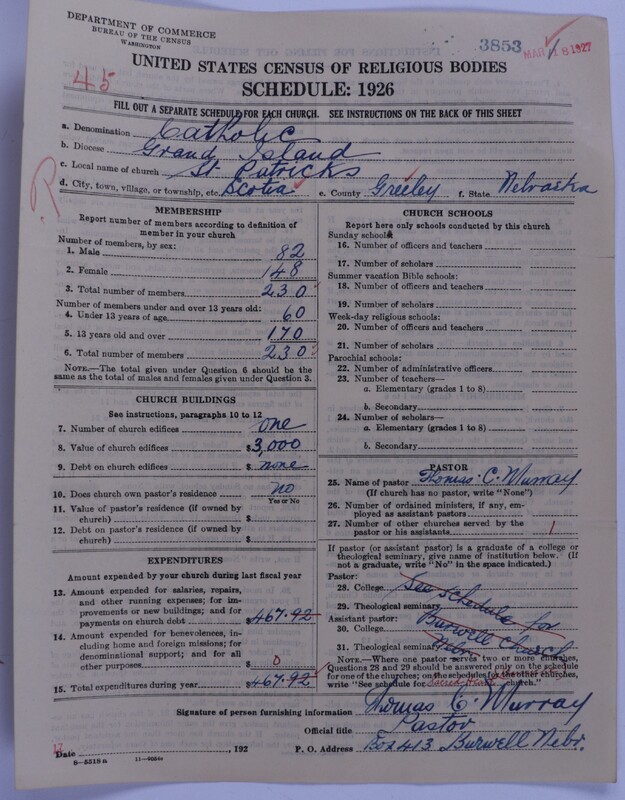 DEPARTMENT OF COMMERCE
BUREAU OF THE CENSUS
WASHINGTON
3853
MAR 18 1927
45
UNITED STATES CENSUS OF RELIGIOUS BODIES
SCHEDULE: 1926
FILL OUT A SEPARATE SCHEDULE FOR EACH CHURCH. SEE INSTRUCTIONS ON THE BACK OF THIS SHEET
a. Denomination Catholic
b. Diocese Grand Island
c. Local name of church St Patricks
d. City, town, village, or township, etc. Scotia e. County Greeley f. State Nebraska
R
MEMBERSHIP
Report number of members according to definition of
member in your church
Number of members, by sex:
1. Male 82
2. Female 148
3. Total number of members 230
Number of members under and over 13 years old:
4. Under 13 years of age 60
5. 13 years old and over 170
6. Total number of members 230
NOTE.—The total given under Question 6 should be
the same as the total of males and females given under Question 3.
CHURCH BUILDINGS
See instructions, paragraphs 10 to 12
7. Number of church edifices one
8. Value of church edifices $3,000
9. Debt on church edifices $ none
10. Does church own pastor's residence no
Yes or No
11. Value of pastor's residence (if owned by
church) $
12. Debt on pastor's residence (if owned by
church) $
EXPENDITURES
Amount expended by your church during last fiscal year
13. Amount expended for salaries, repairs,
and other running expenses; for im-
provements or new buildings; and for
payments on church debt $467.92
14. Amount expended for benevolences, in-
cluding home and foreign missions; for
denominational support; and for all
other purposes $ 0
15. Total expenditures during year $467.92
CHURCH SCHOOLS
Report here only schools conducted by this church
Sunday schools:
16. Number of officers and teachers
17. Number of scholars
Summer vacation Bible schools:
18. Number of officers and teachers
19. Number of scholars
Week-day religious schools:
20. Number of officers and teachers
21. Number of scholars
Parochial schools:
22. Number of administrative officers
23. Number of teachers—
a. Elementary (grades 1 to 8)
b. Secondary
24. Number of scholars—
a. Elementary (grades 1 to 8)
b. Secondary
PASTOR
25. Name of pastor Thomas C. Murray
(If church has no pastor, write "None")
26. Number of ordained ministers, if any, em-
ployed as assistant pastors
27. Number of other churches served by the
pastor or his assistants 1
If pastor (or assistant pastor) is a graduate of a college or
theological seminary, give name of institution below. (If
not a graduate, write "No" in the space indicated.)
Pastor:
28. College See schedule for
29. Theological seminary
Assistant pastor: Burwell Church
30. College
31. Theological seminary Nebr
NOTE.—Where one pastor serves two or more churches,
Questions 28 and 29 should be answered only on the schedule
for one of the churches; on the schedules for the other churches,
write "See schedule for Sacred Heart church."
Signature of person furnishing information Thomas C. Murray
Official title Pastor
Date , 192 P. O. Address Box 413 Burwell Nebr.
8—5518 a